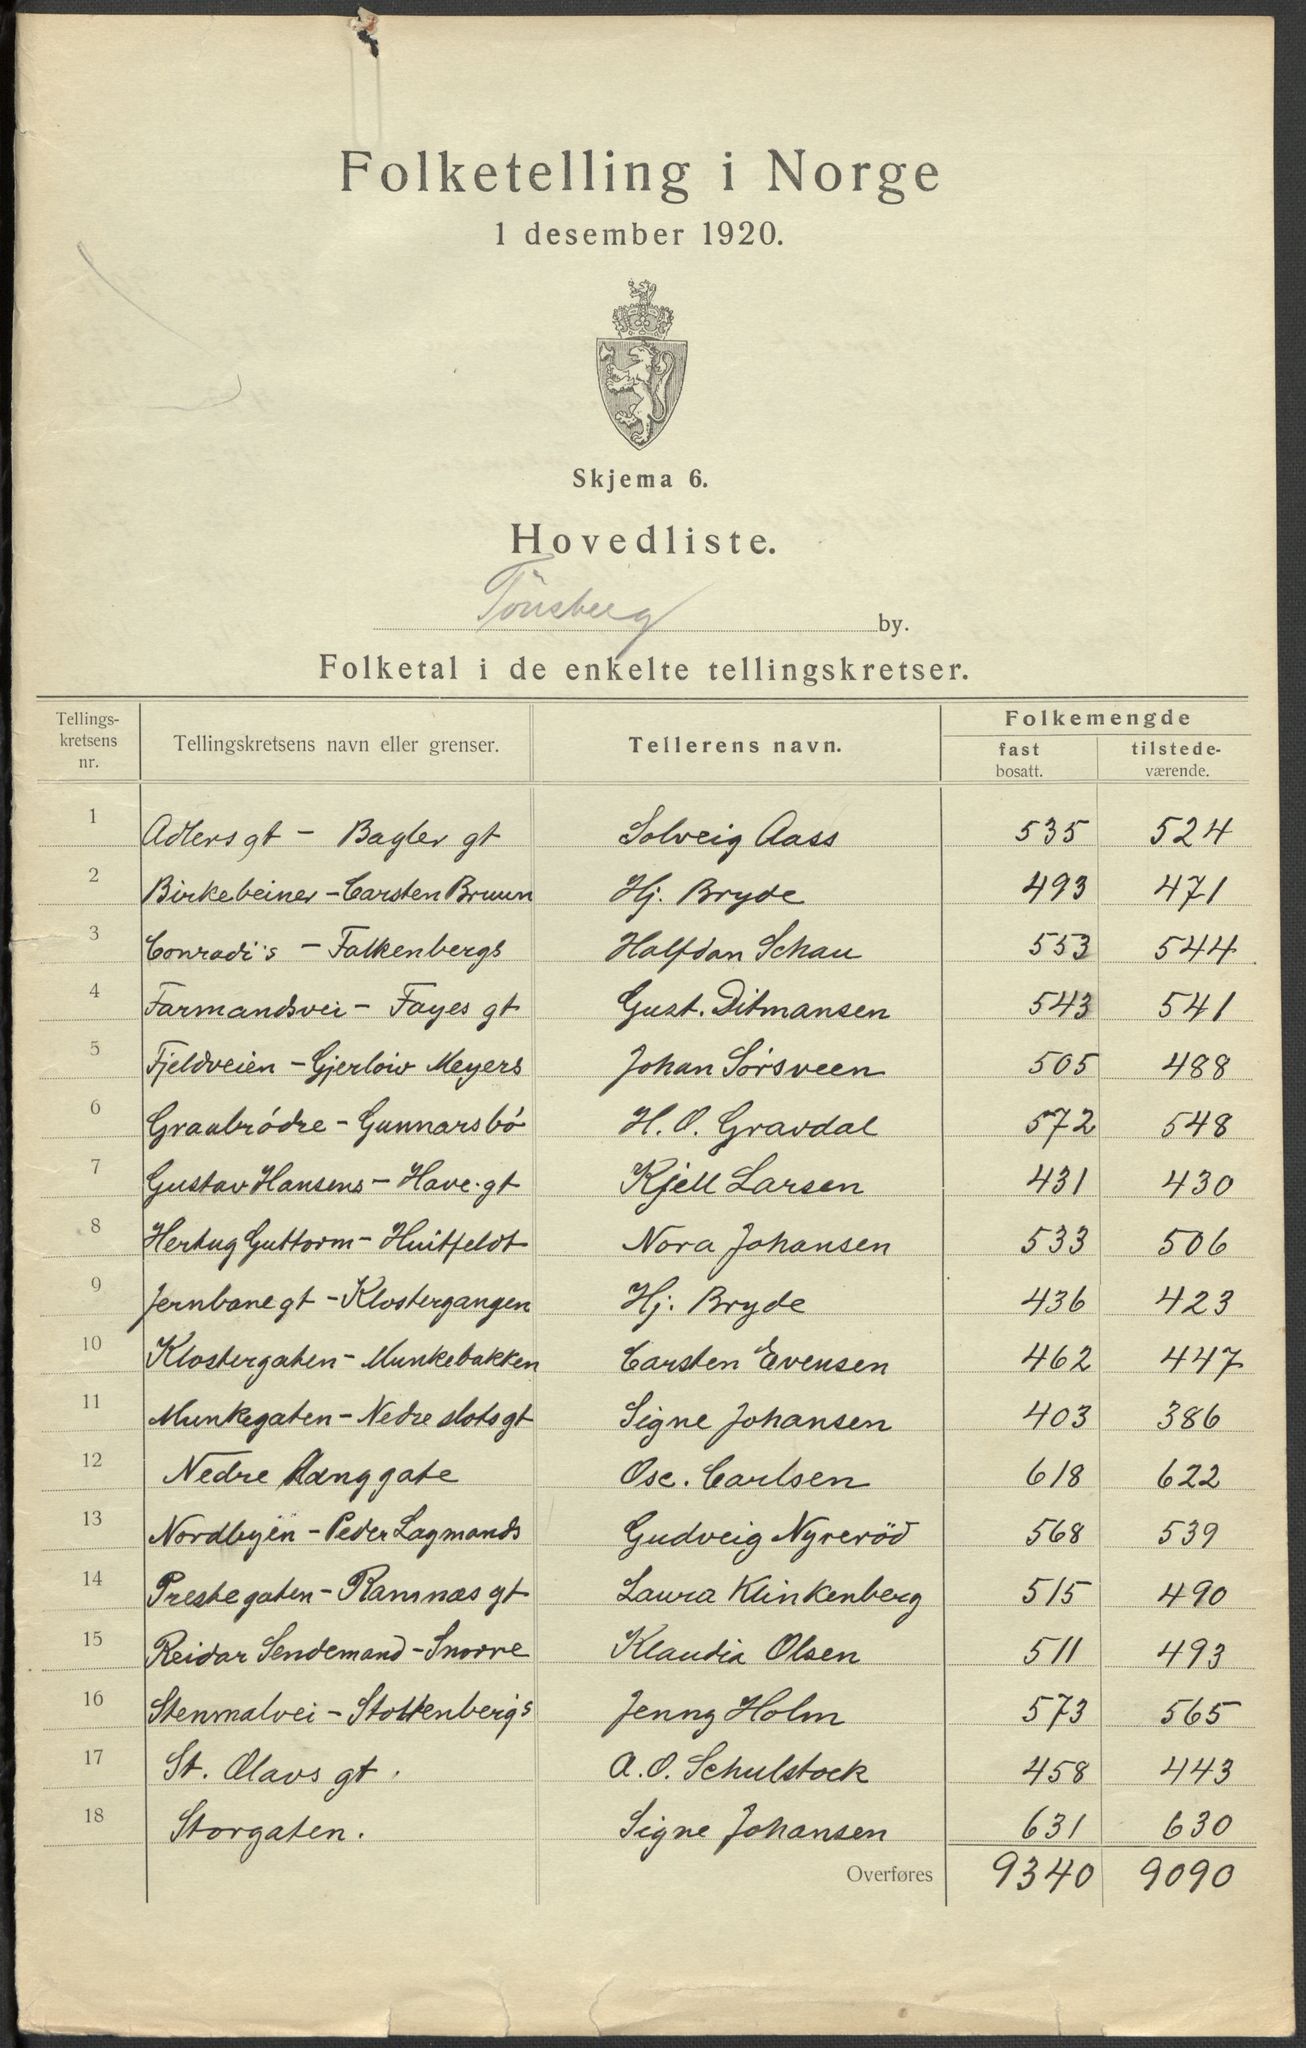 Folketelling i Norge
1 desember 1920.
Skjema 6.
Hovedliste.
Tönsberg by.
Folketal i de enkelte tellingskretser.
Tellings-kretsens nr. Tellingskretsens navn eller grenser. Tellerens navn. Folkemengde
fast bosatt. tilstede-værende.
1 Adlers gt - Bagler gt Solveig Aass 535 524
2 Birkebeiner - Carsten Bruun Hj. Bryde 493 471
3 Conradi's - Falkenbergs Halfdan Schau 553 544
4 Farmandsvei - Fayes gt Gust. Ditmansen 543 541
5 Fjeldveien - Gjerlöw Meyers Johan Sørsveen 505 488
6 Graabrödre - Gunnarsbö H. O. Gravdal 572 548
7 Gustav Hansens - Have. gt Kjell Larsen 431 430
8 Hertug Guttorm - Huitfeldt Nora Johansen 533 506
9 Jernbane gt - Klostergangen Hj. Bryde 436 423
10 Klostergaten - Munkebakken Carsten Evensen 462 447
11 Munkegaten - Nedre slots gt Signe Johansen 403 386
12 Nedre Langgate Osc. Carlsen 618 622
13 Nordbyen - Peder Lagmands Gudveig Nyreröd 568 539
14 Prestegaten - Ramnæs gt Laura Klinkenberg 515 490
15 Reidar Sendemand - Snorre Klaudia Olsen 511 493
16 Stenmalvei - Stoltenberg's Jenny Holm 573 565
17 St. Olavs gt. A. O. Schulstock 458 443
18 Storgaten. Signe Johansen 631 630
Overføres 9340 9090